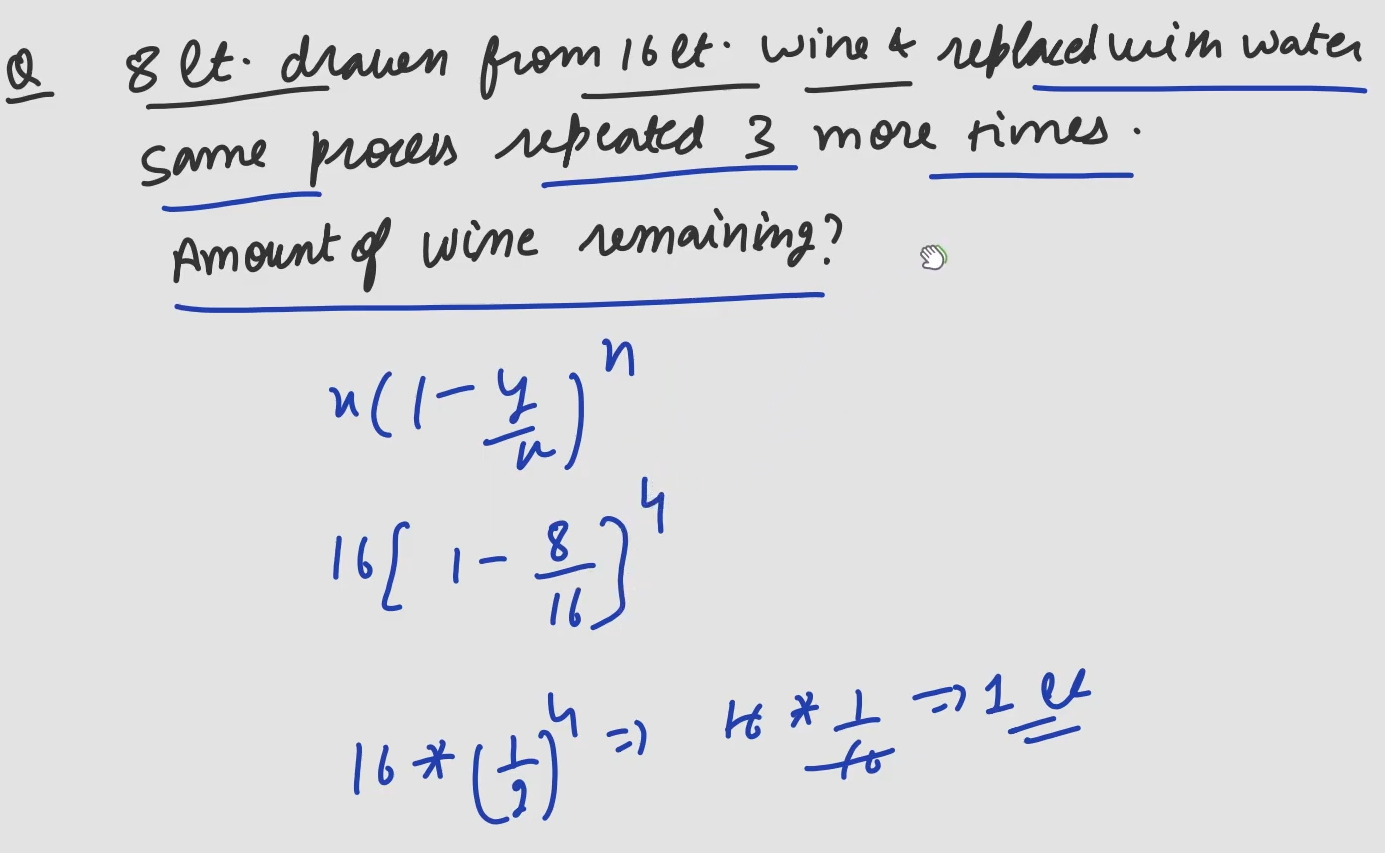 Q 8 lt. drawn from 16 lt. wine & replaced with water
same process repeated 3 more times.
Amount of wine remaining?
x(1-y/x)^n
16[1-8/16]^4
16*(1/2)^4 => 16*1/16 => 1 lt